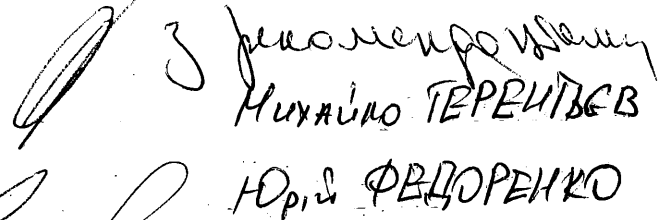 З рекомендаціями
Михайло ТЕРЕНТЬЄВ
Юрій ФЕДОРЕНКО